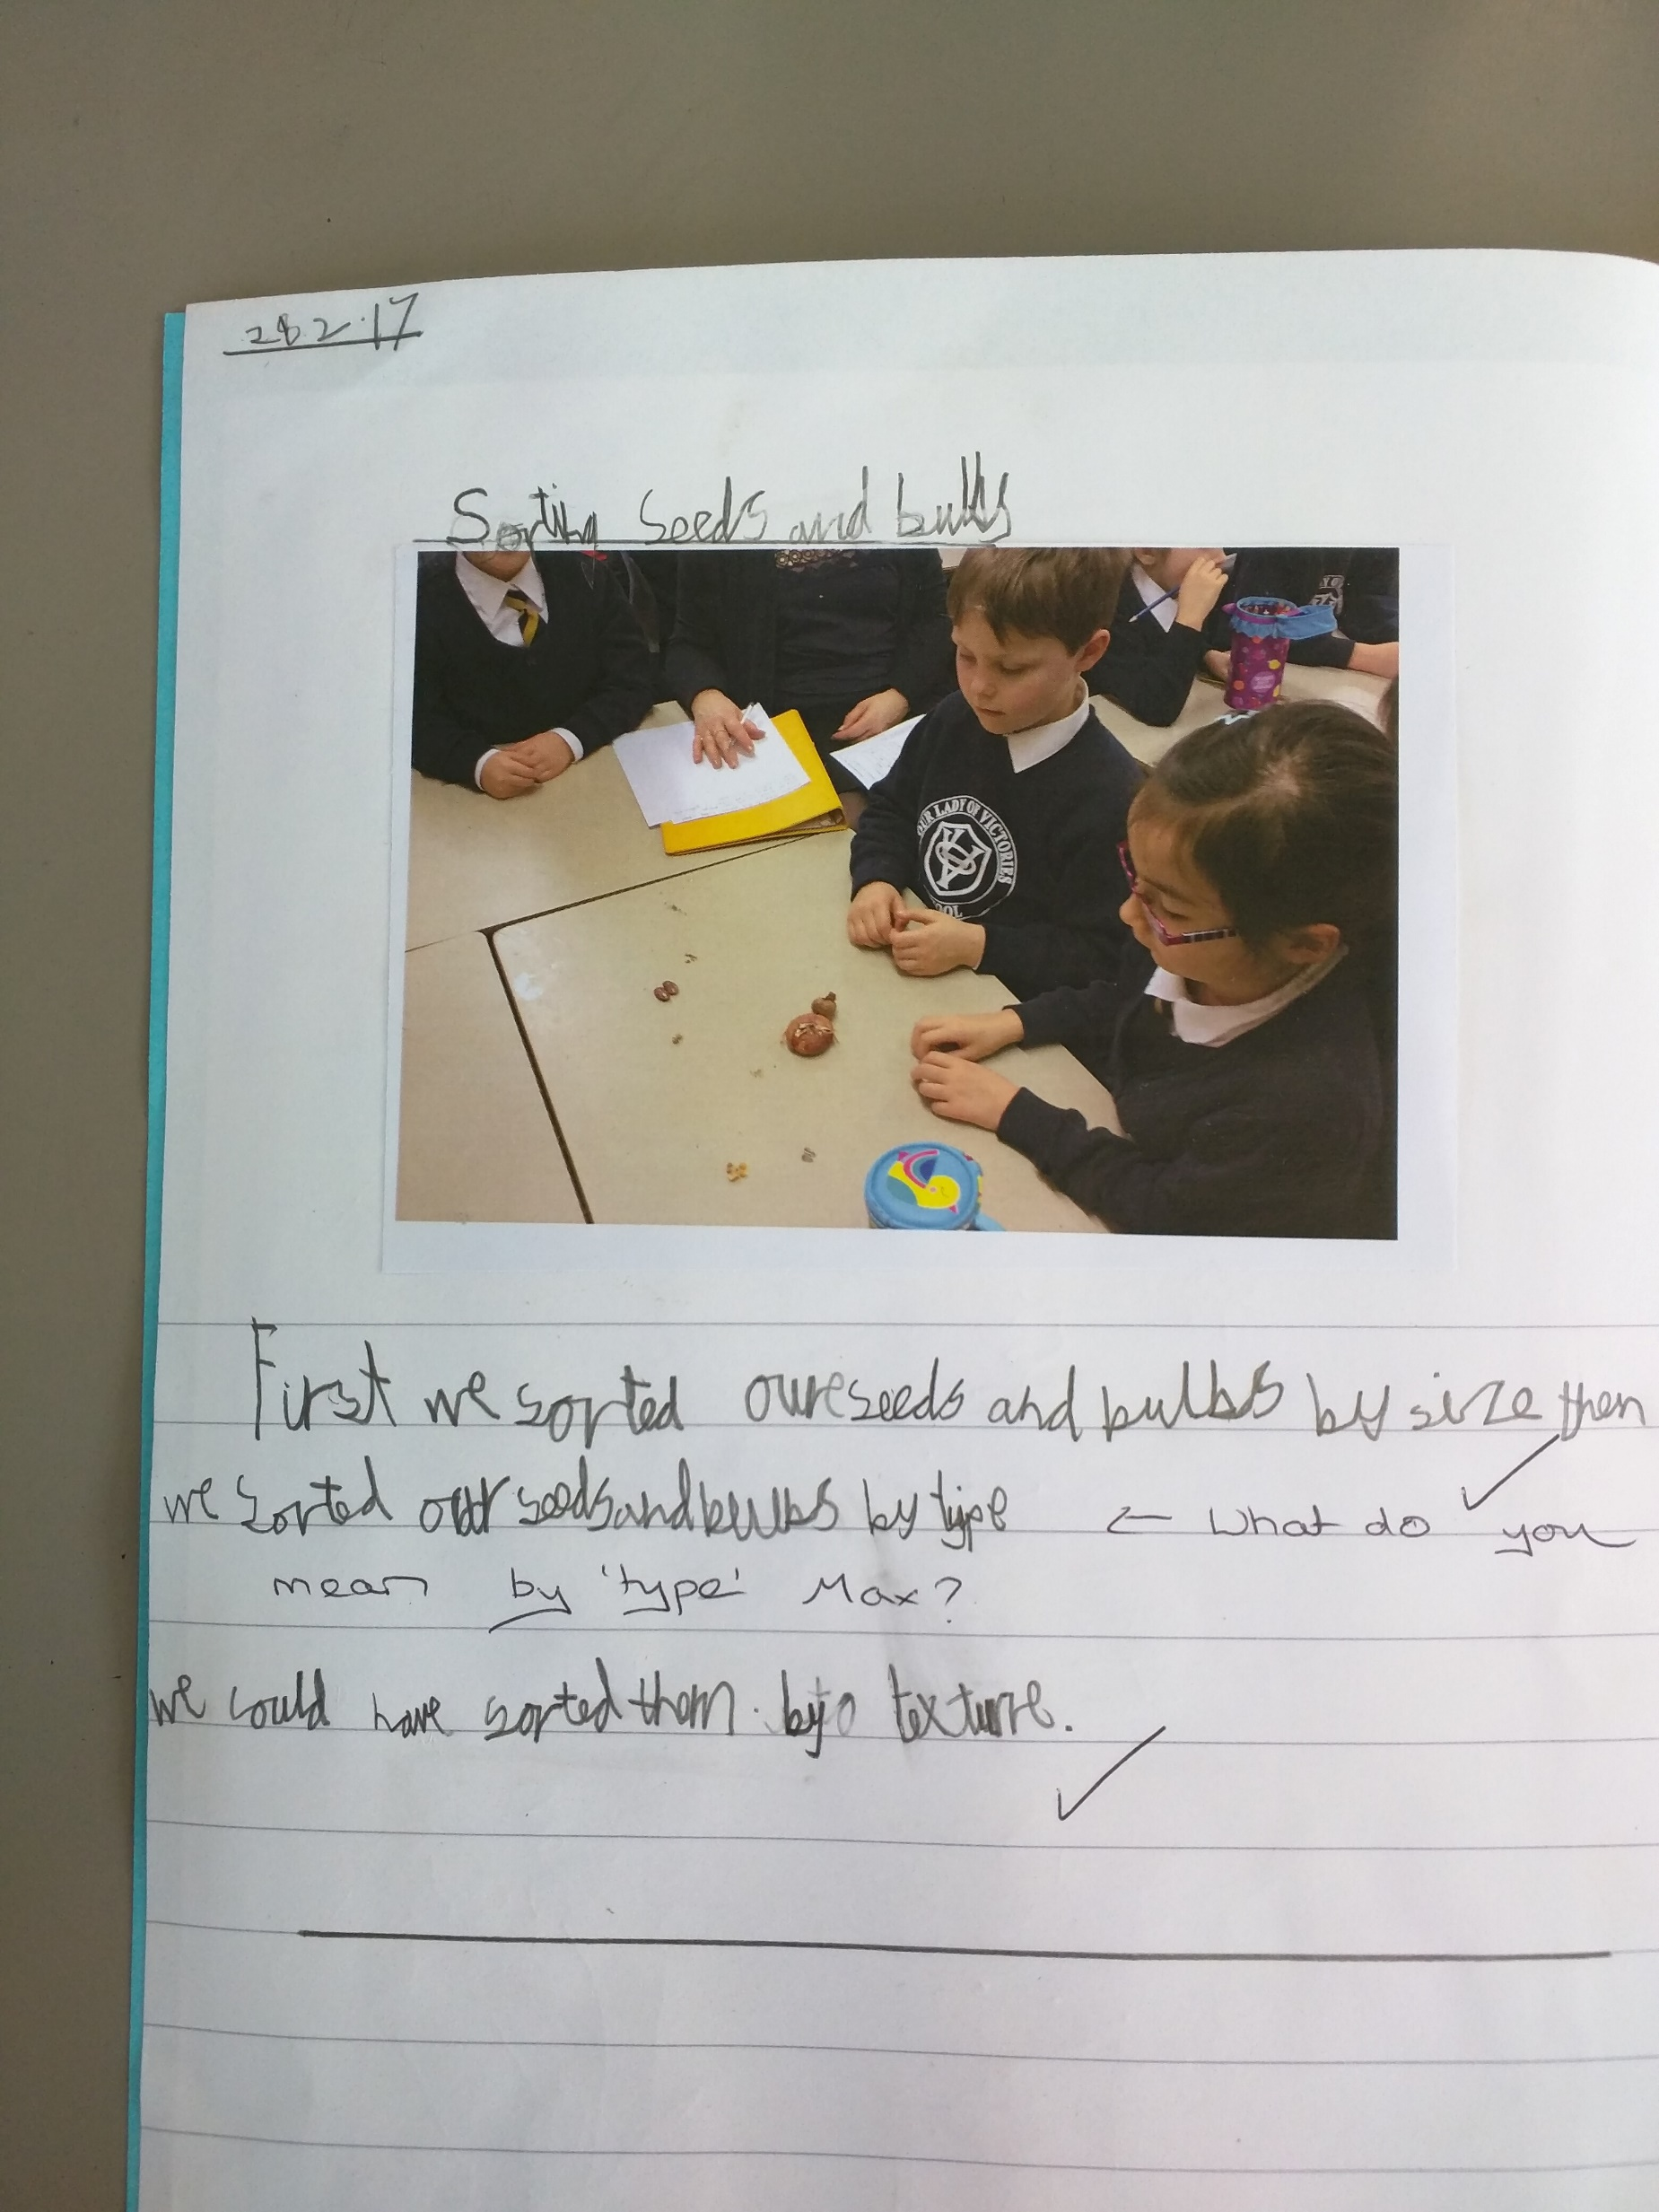 28.2.17
Sorting seeds and bulbs
OUR LADY OF VICTORIES
OOL
First we sorted oure seeds and bulbs by size then
we sorted our seeds and bulbs by type ← What do you
mean by 'type' Max?
we could have sorted them by texture.